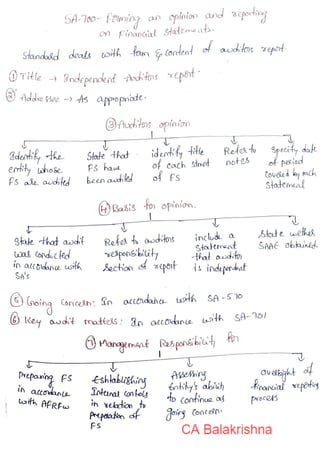 SA-700- Forming an opinion and reporting
on Financial Statements.
Standard deals with form & content of auditors report.
① Title → Independent Auditors report.
② Addressee → As appropriate.
③ Auditors opinion
Identify the
entity whose
FS are audited
State that
FS have
been audited
identify title
of each stmnt
of FS
Refer to
notes
Specify date
of period
Covered by each
Statement
④ Basis for opinion.
State that audit
was conducted
in accordance with
SA's
Refer to auditors
responsibility
Section of report
include a
Statement
that auditor
is independent
State wether
SAAE obtained.
⑤ Going concern: In accordance with SA-570
⑥ Key audit matters: In accordance with SA-701
⑦ Management Responsibility for
Preparing FS
in accordance
with AFRFW
Eshtablishing
Internal controls
in relation to
Preparation of
FS
Assessing
Entity's ability
to continue as
going concern.
oversight of
financial reporting
process
CA Balakrishna